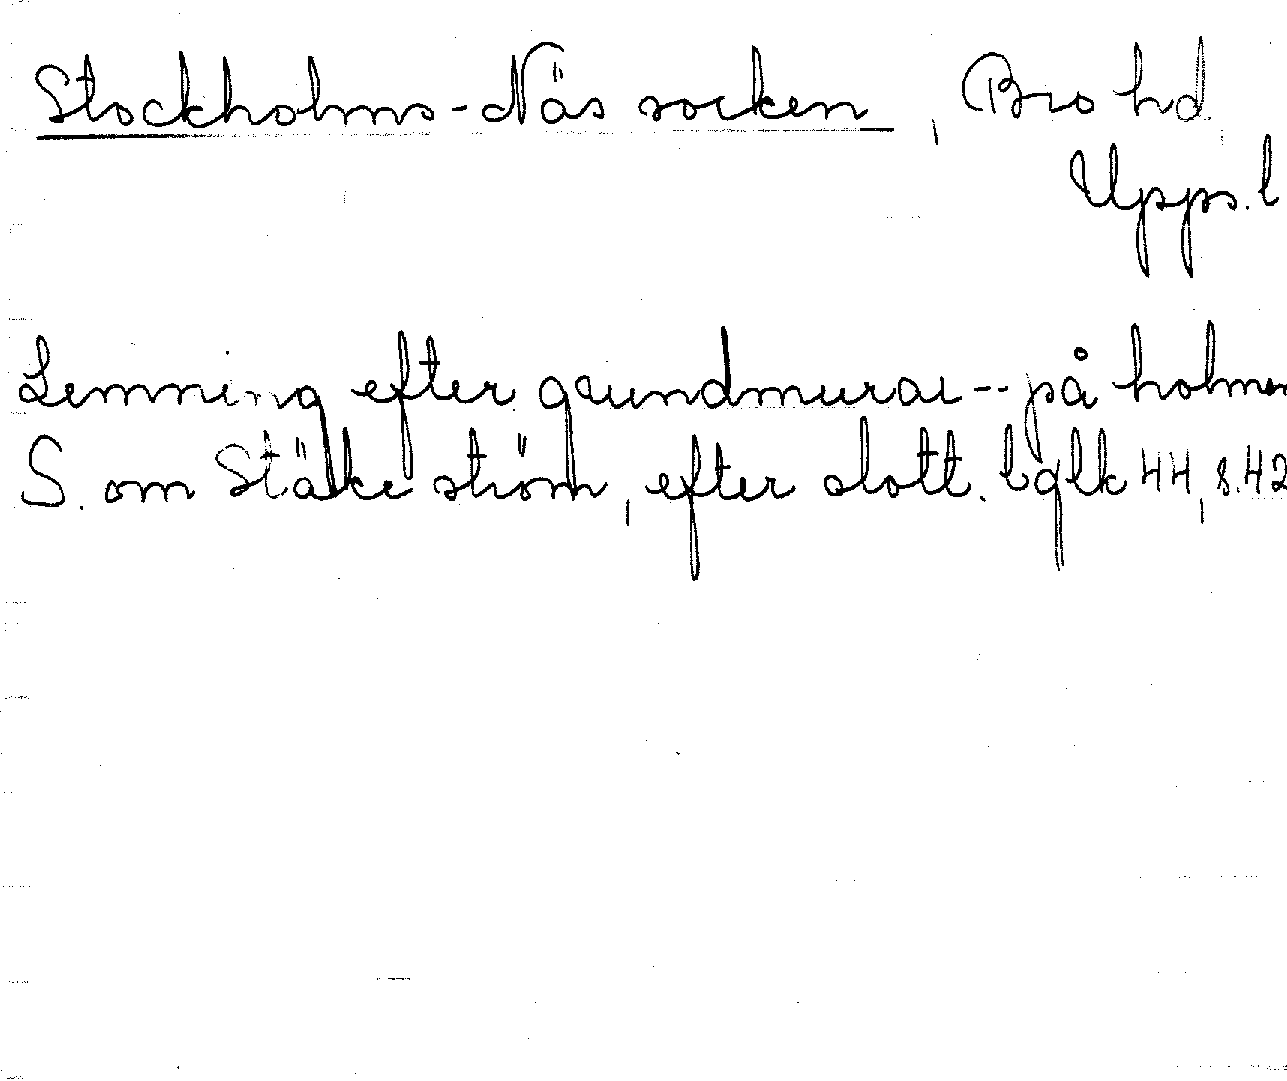 Stockholms-Näs socken, Bro hd
Upps. l
Lemning efter grundmurar -- på holmen
S. om Stäke ström, efter slott. bglk 44, s. 42